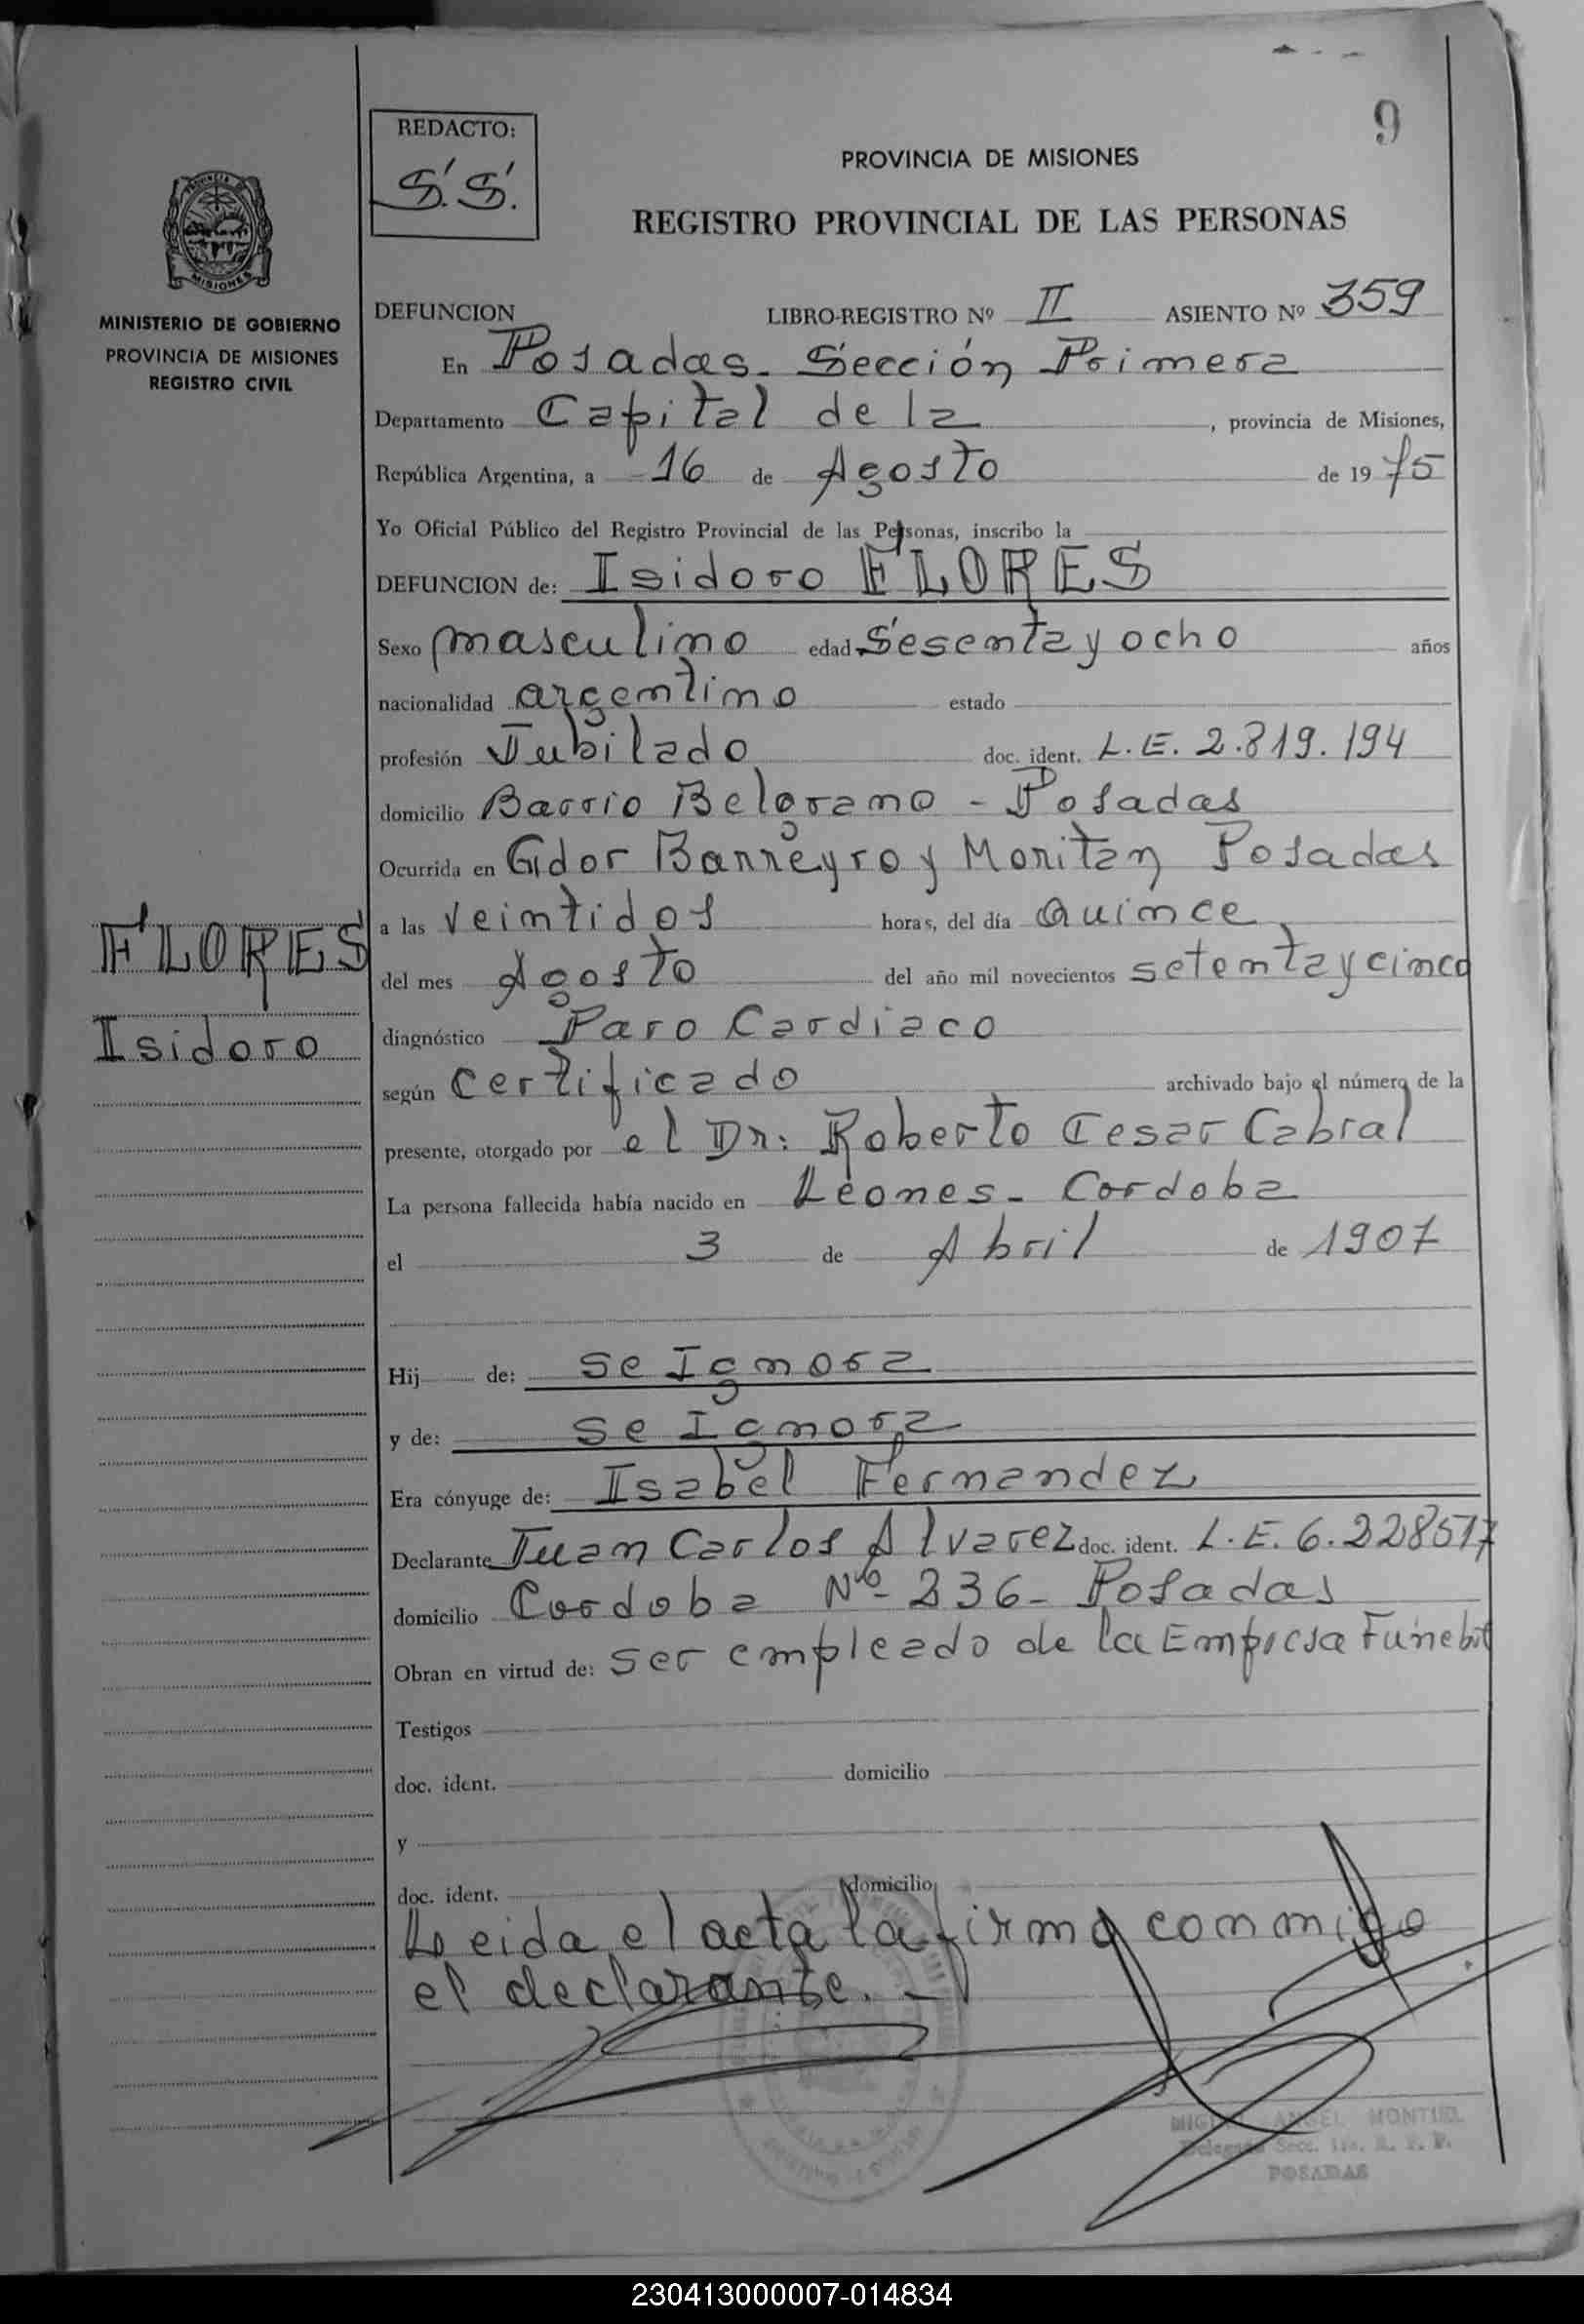 9
REDACTO:
S.S.
PROVINCIA DE MISIONES
REGISTRO PROVINCIAL DE LAS PERSONAS
MISIONES
MINISTERIO DE GOBIERNO
PROVINCIA DE MISIONES
REGISTRO CIVIL
DEFUNCION LIBRO-REGISTRO Nº II ASIENTO Nº 359
En Posadas. Sección Primera
Departamento Capital de la, provincia de Misiones,
República Argentina, a 16 de Agosto de 1975
Yo Oficial Público del Registro Provincial de las Personas, inscribo la
DEFUNCION de: Isidoro FLORES
Sexo masculino edad Sesenta y ocho años
nacionalidad argentino estado
profesión Jubilado doc. ident. L.E. 2.819.194
domicilio Barrio Belgrano - Posadas
Ocurrida en Gdor Barreyro y Moritan Posadas
a las veintidos horas, del día Quince
del mes Agosto del año mil novecientos setenta y cinco
diagnóstico Paro Cardiaco
según Certificado archivado bajo el número de la
presente, otorgado por el Dr: Roberto Cesar Cabral
La persona fallecida había nacido en Leones - Cordoba
el 3 de Abril de 1907
Hij de: se Ignora
y de: se Ignora
Era cónyuge de: Isabel Fernandez
Declarante Juan Carlos Alvarez doc. ident. L.E. 6.228517
domicilio Cordoba Nº 236 - Posadas
Obran en virtud de: ser empleado de la Empresa Funebre
Testigos
doc. ident. domicilio
y
doc. ident. domicilio
Leida el acta la firma conmigo
el declarante. -
FLORES
Isidoro
MIGUEL ANGEL MONTIEL
Delegado Secc. 1ra. R. P. P.
POSADAS
230413000007-014834